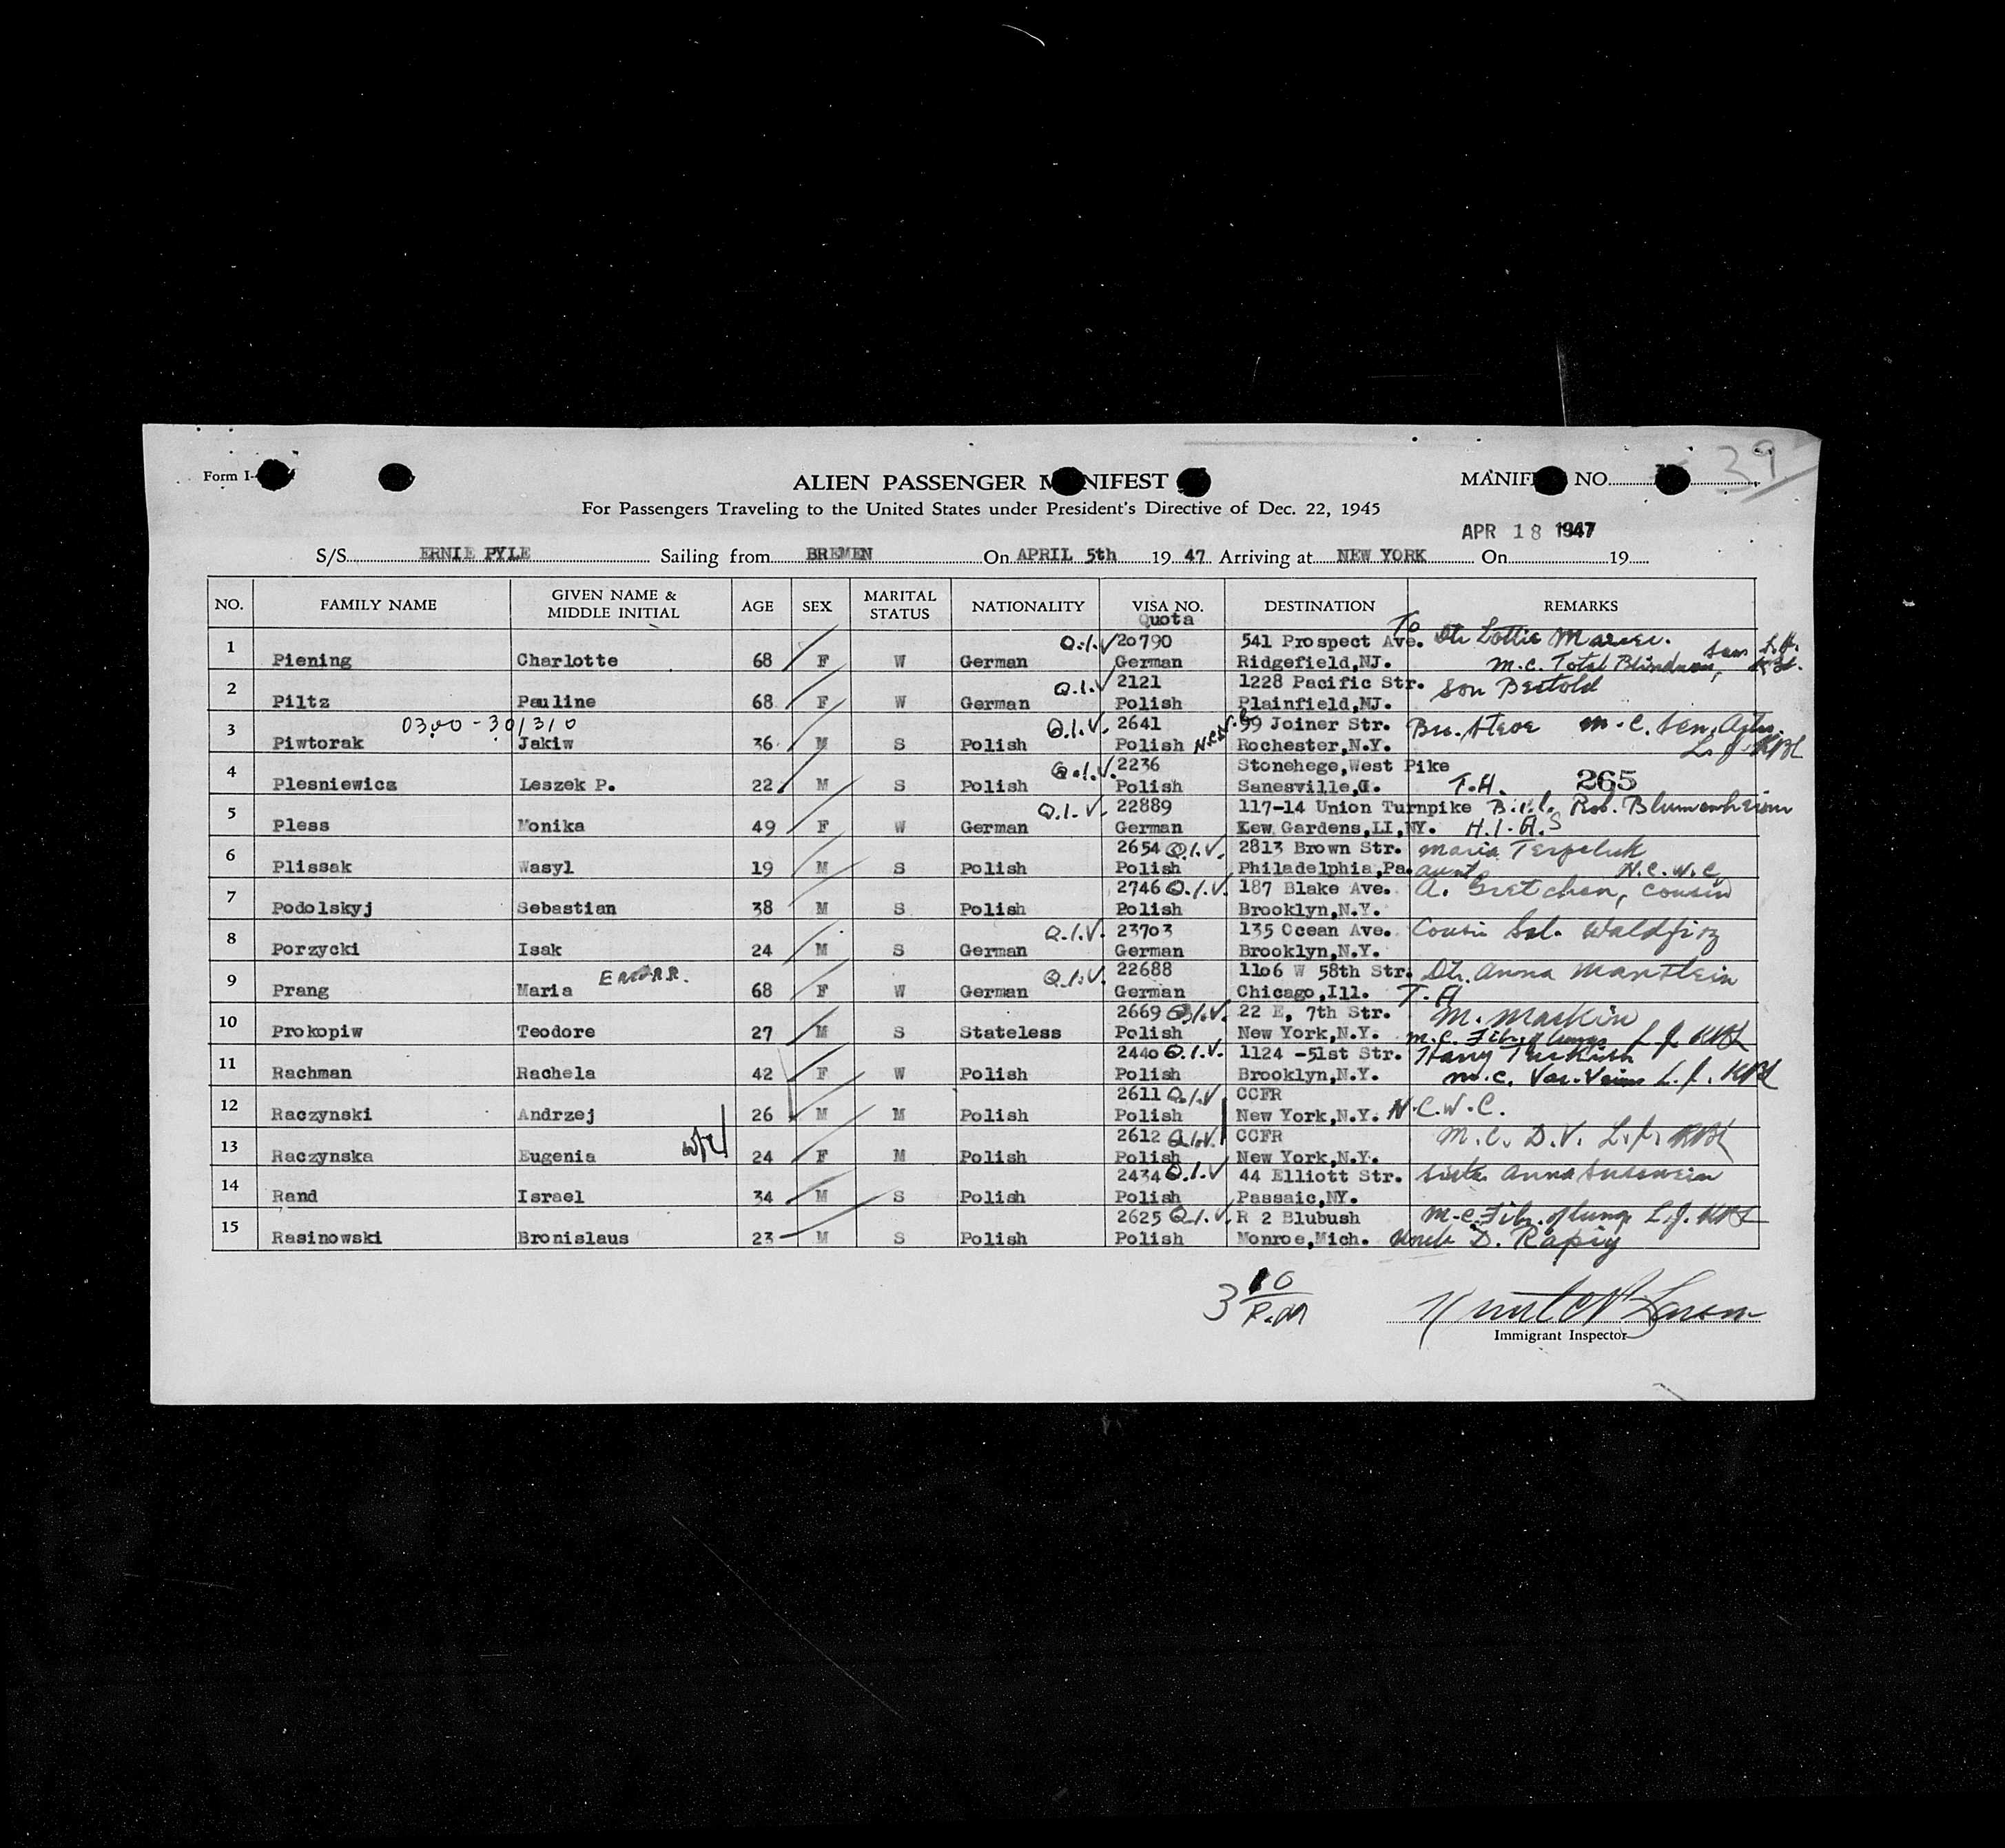 39
Form I-
ALIEN PASSENGER MANIFEST
MANIFEST NO.
For Passengers Traveling to the United States under President's Directive of Dec. 22, 1945
APR 18 1947
S/S ERNIE PYLE Sailing from BREMEN On APRIL 5th 1947 Arriving at NEW YORK On 19
NO. FAMILY NAME GIVEN NAME & MIDDLE INITIAL AGE SEX MARITAL STATUS NATIONALITY VISA NO. Quota DESTINATION REMARKS
To
1 Piening Charlotte 68 F W German Q.I.V 20790 German 541 Prospect Ave. Ridgefield,NJ. Dtr Lottie M.C. Total Blindness,
2 Piltz Pauline 68 F W German Q.I.V 2121 Polish 1228 Pacific Str. Plainfield,NJ. Son Bertold
0300-301310
3 Piwtorak Jakiw 36 M S Polish Q.I.V. 2641 Polish N.C.W.C 99 Joiner Str. Rochester,N.Y. Bro. Steve M.C. Sen. L.J. KBL
4 Plesniewicz Leszek P. 22 M S Polish Q.I.V. 2236 Polish Stonehege,West Pike Sanesville,O. T.H. 265
5 Pless Monika 49 F W German Q.I.V. 22889 German 117-14 Union Turnpike Kew Gardens,LI,NY. B.i.l. Rob. Blumenheim H.I.A.S
6 Plissak Wasyl 19 M S Polish 2654 Q.I.V. Polish 2813 Brown Str. Philadelphia,Pa. Maria Terpeluk aunt N.C.W.C
7 Podolskyj Sebastian 38 M S Polish 2746 Q.I.V. Polish 187 Blake Ave. Brooklyn,N.Y. A. Gretchen, cousin
8 Porzycki Isak 24 M S German Q.I.V. 23703 German 135 Ocean Ave. Brooklyn,N.Y. Cousin Sal.
9 Prang Maria 68 F W German Q.I.V. 22688 German 1106 W 58th Str. Chicago,Ill. Dtr. Anna T.H
10 Prokopiw Teodore 27 M S Stateless 2669 Q.I.V. Polish 22 E, 7th Str. New York,N.Y. M. Maskiw M.C. Fib. of lungs L.J. KBL
11 Rachman Rachela 42 F W Polish 2440 Q.I.V. Polish 1124 -51st Str. Brooklyn,N.Y. Harry M.C. Var. Veins L.J. KBL
12 Raczynski Andrzej 26 M M Polish 2611 Q.I.V Polish CCFR New York,N.Y. N.C.W.C.
13 Raczynska Eugenia 24 F M Polish 2612 Q.I.V. Polish CCFR New York,N.Y. M.C. D.V. L.J. KBL
14 Rand Israel 34 M S Polish 2434 Q.I.V Polish 44 Elliott Str. Passaic,NY. Sister Anna
15 Rasinowski Bronislaus 23 M S Polish 2625 Q.I.V. Polish R 2 Blubush Monroe,Mich. M.C. Fib. of lung L.J. KBL Uncle D. Rapiy
3 10 P.M
Immigrant Inspector